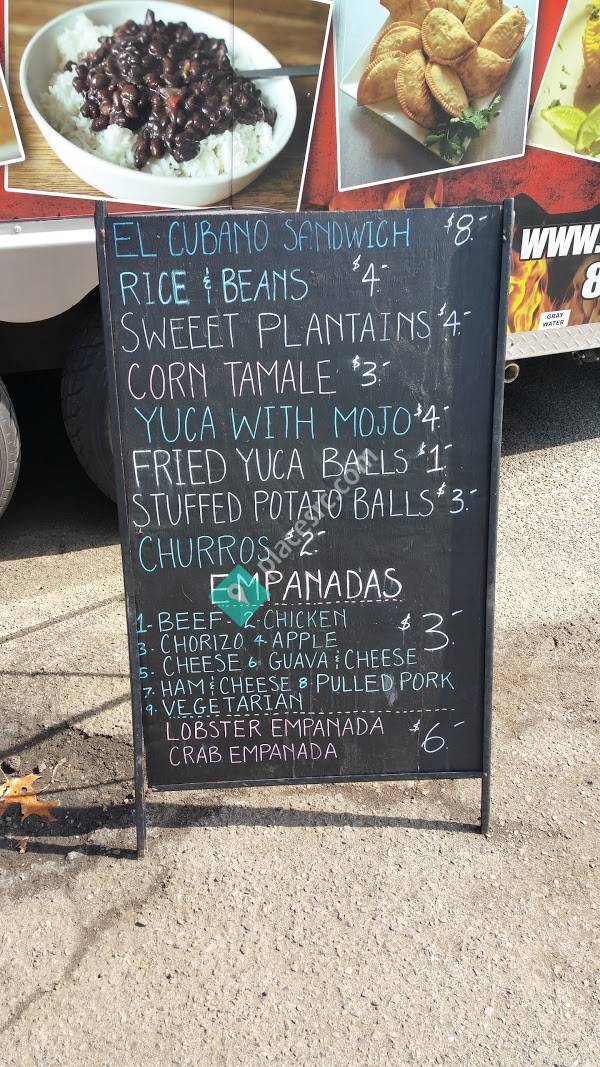 EL CUBANO SANDWICH $8.-
RICE & BEANS $4.-
SWEEET PLANTAINS $4.-
CORN TAMALE $3.-
YUCA WITH MOJO $4.-
FRIED YUCA BALLS $1.-
STUFFED POTATO BALLS $3.-
CHURROS $2.-
EMPANADAS
1. BEEF 2. CHICKEN $3.-
3. CHORIZO 4. APPLE
5. CHEESE 6. GUAVA & CHEESE
7. HAM & CHEESE 8. PULLED PORK
9. VEGETARIAN
LOBSTER EMPANADA $6.-
CRAB EMPANADA
WWW.
8
GRAY
WATER